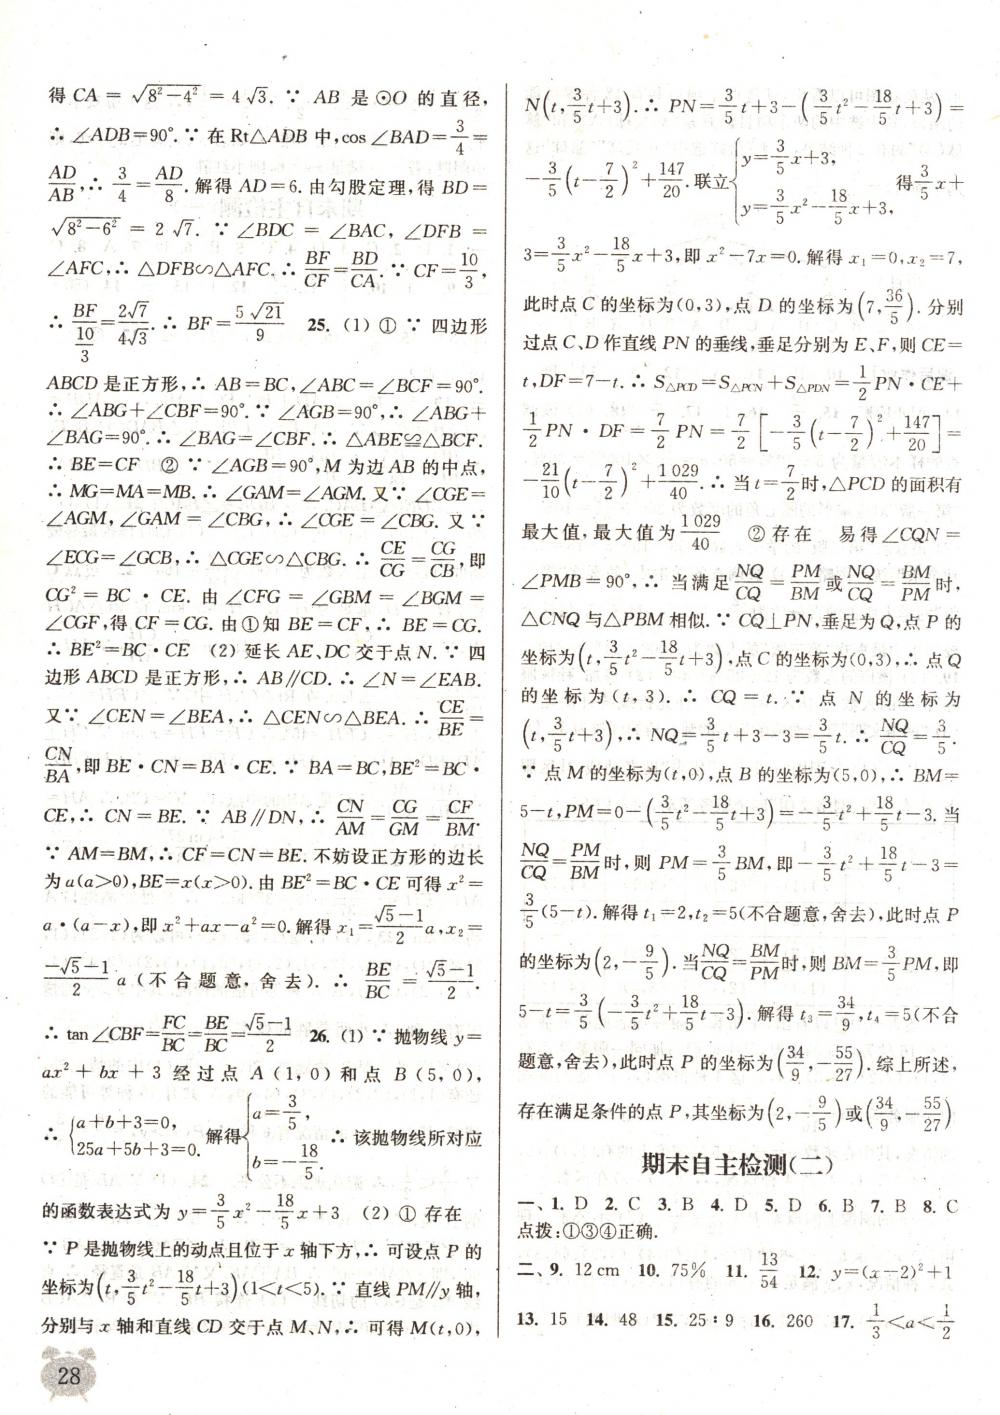 得 CA = √(8²−4²) = 4√3. ∵ AB 是 ⊙O 的直径,
∴ ∠ADB=90°. ∵ 在 Rt△ADB 中, cos∠BAD=3/4=
AD/AB, ∴ 3/4=AD/8. 解得 AD=6. 由勾股定理,得 BD=
√(8²−6²) = 2√7. ∵ ∠BDC = ∠BAC, ∠DFB =
∠AFC, ∴ △DFB∽△AFC. ∴ BF/CF=BD/CA. ∵ CF=10/3,
∴ BF/(10/3)=2√7/4√3. ∴ BF=5√21/9 25. (1) ① ∵ 四边形
ABCD 是正方形, ∴ AB=BC, ∠ABC=∠BCF=90°.
∴ ∠ABG+∠CBF=90°. ∵ ∠AGB=90°, ∴ ∠ABG+
∠BAG=90°. ∴ ∠BAG=∠CBF. ∴ △ABE≌△BCF.
∴ BE=CF ② ∵ ∠AGB=90°, M 为边 AB 的中点,
∴ MG=MA=MB. ∴ ∠GAM=∠AGM. 又∵ ∠CGE=
∠AGM, ∠GAM = ∠CBG, ∴ ∠CGE = ∠CBG. 又∵
∠ECG=∠GCB, ∴ △CGE∽△CBG. ∴ CE/CG=CG/CB, 即
CG² = BC · CE. 由 ∠CFG = ∠GBM = ∠BGM =
∠CGF, 得 CF=CG. 由①知 BE=CF, ∴ BE=CG.
∴ BE²=BC·CE (2) 延长 AE、DC 交于点 N. ∵ 四
边形 ABCD 是正方形, ∴ AB∥CD. ∴ ∠N=∠EAB.
又∵ ∠CEN=∠BEA, ∴ △CEN∽△BEA. ∴ CE/BE=
CN/BA, 即 BE·CN=BA·CE. ∵ BA=BC, BE²=BC·
CE, ∴ CN=BE. ∵ AB∥DN, ∴ CN/AM=CG/GM=CF/BM.
∵ AM=BM, ∴ CF=CN=BE. 不妨设正方形的边长
为 a(a>0), BE=x(x>0). 由 BE²=BC·CE 可得 x²=
a·(a−x), 即 x²+ax−a²=0. 解得 x₁=(√5−1)/2 a, x₂=
(−√5−1)/2 a (不合题意,舍去). ∴ BE/BC = (√5−1)/2.
∴ tan∠CBF=FC/BC=BE/BC=(√5−1)/2 26. (1) ∵ 抛物线 y=
ax² + bx + 3 经过点 A (1, 0) 和点 B (5, 0),
∴ {a+b+3=0, 25a+5b+3=0. 解得{a=3/5, b=−18/5. ∴ 该抛物线所对应
的函数表达式为 y=3/5x²−18/5x+3 (2) ① 存在
∵ P 是抛物线上的动点且位于 x 轴下方, ∴ 可设点 P 的
坐标为(t, 3/5t²−18/5t+3)(1<t<5). ∵ 直线 PM∥y 轴,
分别与 x 轴和直线 CD 交于点 M、N, ∴ 可得 M(t,0),
28
N(t, 3/5t+3). ∴ PN=3/5t+3−(3/5t²−18/5t+3)=
−3/5(t−7/2)²+147/20. 联立{y=3/5x+3, y=3/5x²−18/5x+3, 得3/5x+
3=3/5x²−18/5x+3, 即 x²−7x=0. 解得 x₁=0, x₂=7,
此时点 C 的坐标为(0,3), 点 D 的坐标为(7, 36/5). 分别
过点 C、D 作直线 PN 的垂线, 垂足分别为 E、F, 则 CE=
t, DF=7−t. ∴ S△PCD=S△PCN+S△PDN=1/2PN·CE+
1/2PN·DF=7/2PN=7/2[−3/5(t−7/2)²+147/20]=
−21/10(t−7/2)²+1029/40. ∴ 当 t=7/2时, △PCD 的面积有
最大值, 最大值为1029/40 ② 存在 易得∠CQN=
∠PMB=90°, ∴ 当满足NQ/CQ=PM/BM或NQ/CQ=BM/PM时,
△CNQ 与△PBM 相似. ∵ CQ⊥PN, 垂足为 Q, 点 P 的
坐标为(t, 3/5t²−18/5t+3), 点 C 的坐标为(0,3), ∴ 点 Q
的坐标为 (t, 3). ∴ CQ = t. ∵ 点 N 的坐标为
(t, 3/5t+3), ∴ NQ=3/5t+3−3=3/5t. ∴ NQ/CQ=3/5.
∵ 点 M 的坐标为(t,0), 点 B 的坐标为(5,0), ∴ BM=
5−t, PM=0−(3/5t²−18/5t+3)=−3/5t²+18/5t−3. 当
NQ/CQ=PM/BM时, 则 PM=3/5BM, 即−3/5t²+18/5t−3=
3/5(5−t). 解得 t₁=2, t₂=5(不合题意,舍去), 此时点 P
的坐标为(2, −9/5). 当NQ/CQ=BM/PM时, 则 BM=3/5PM, 即
5−t=3/5(−3/5t²+18/5t−3). 解得 t₃=34/9, t₄=5(不合
题意,舍去), 此时点 P 的坐标为(34/9, −55/27). 综上所述,
存在满足条件的点 P, 其坐标为(2, −9/5)或(34/9, −55/27)
期末自主检测(二)
一、1. D 2. C 3. B 4. D 5. D 6. B 7. B 8. C
点拨:①③④正确.
二、9. 12 cm 10. 75% 11. 13/54 12. y=(x−2)²+1
13. 15 14. 48 15. 25∶9 16. 260 17. 1/3<a<1/2